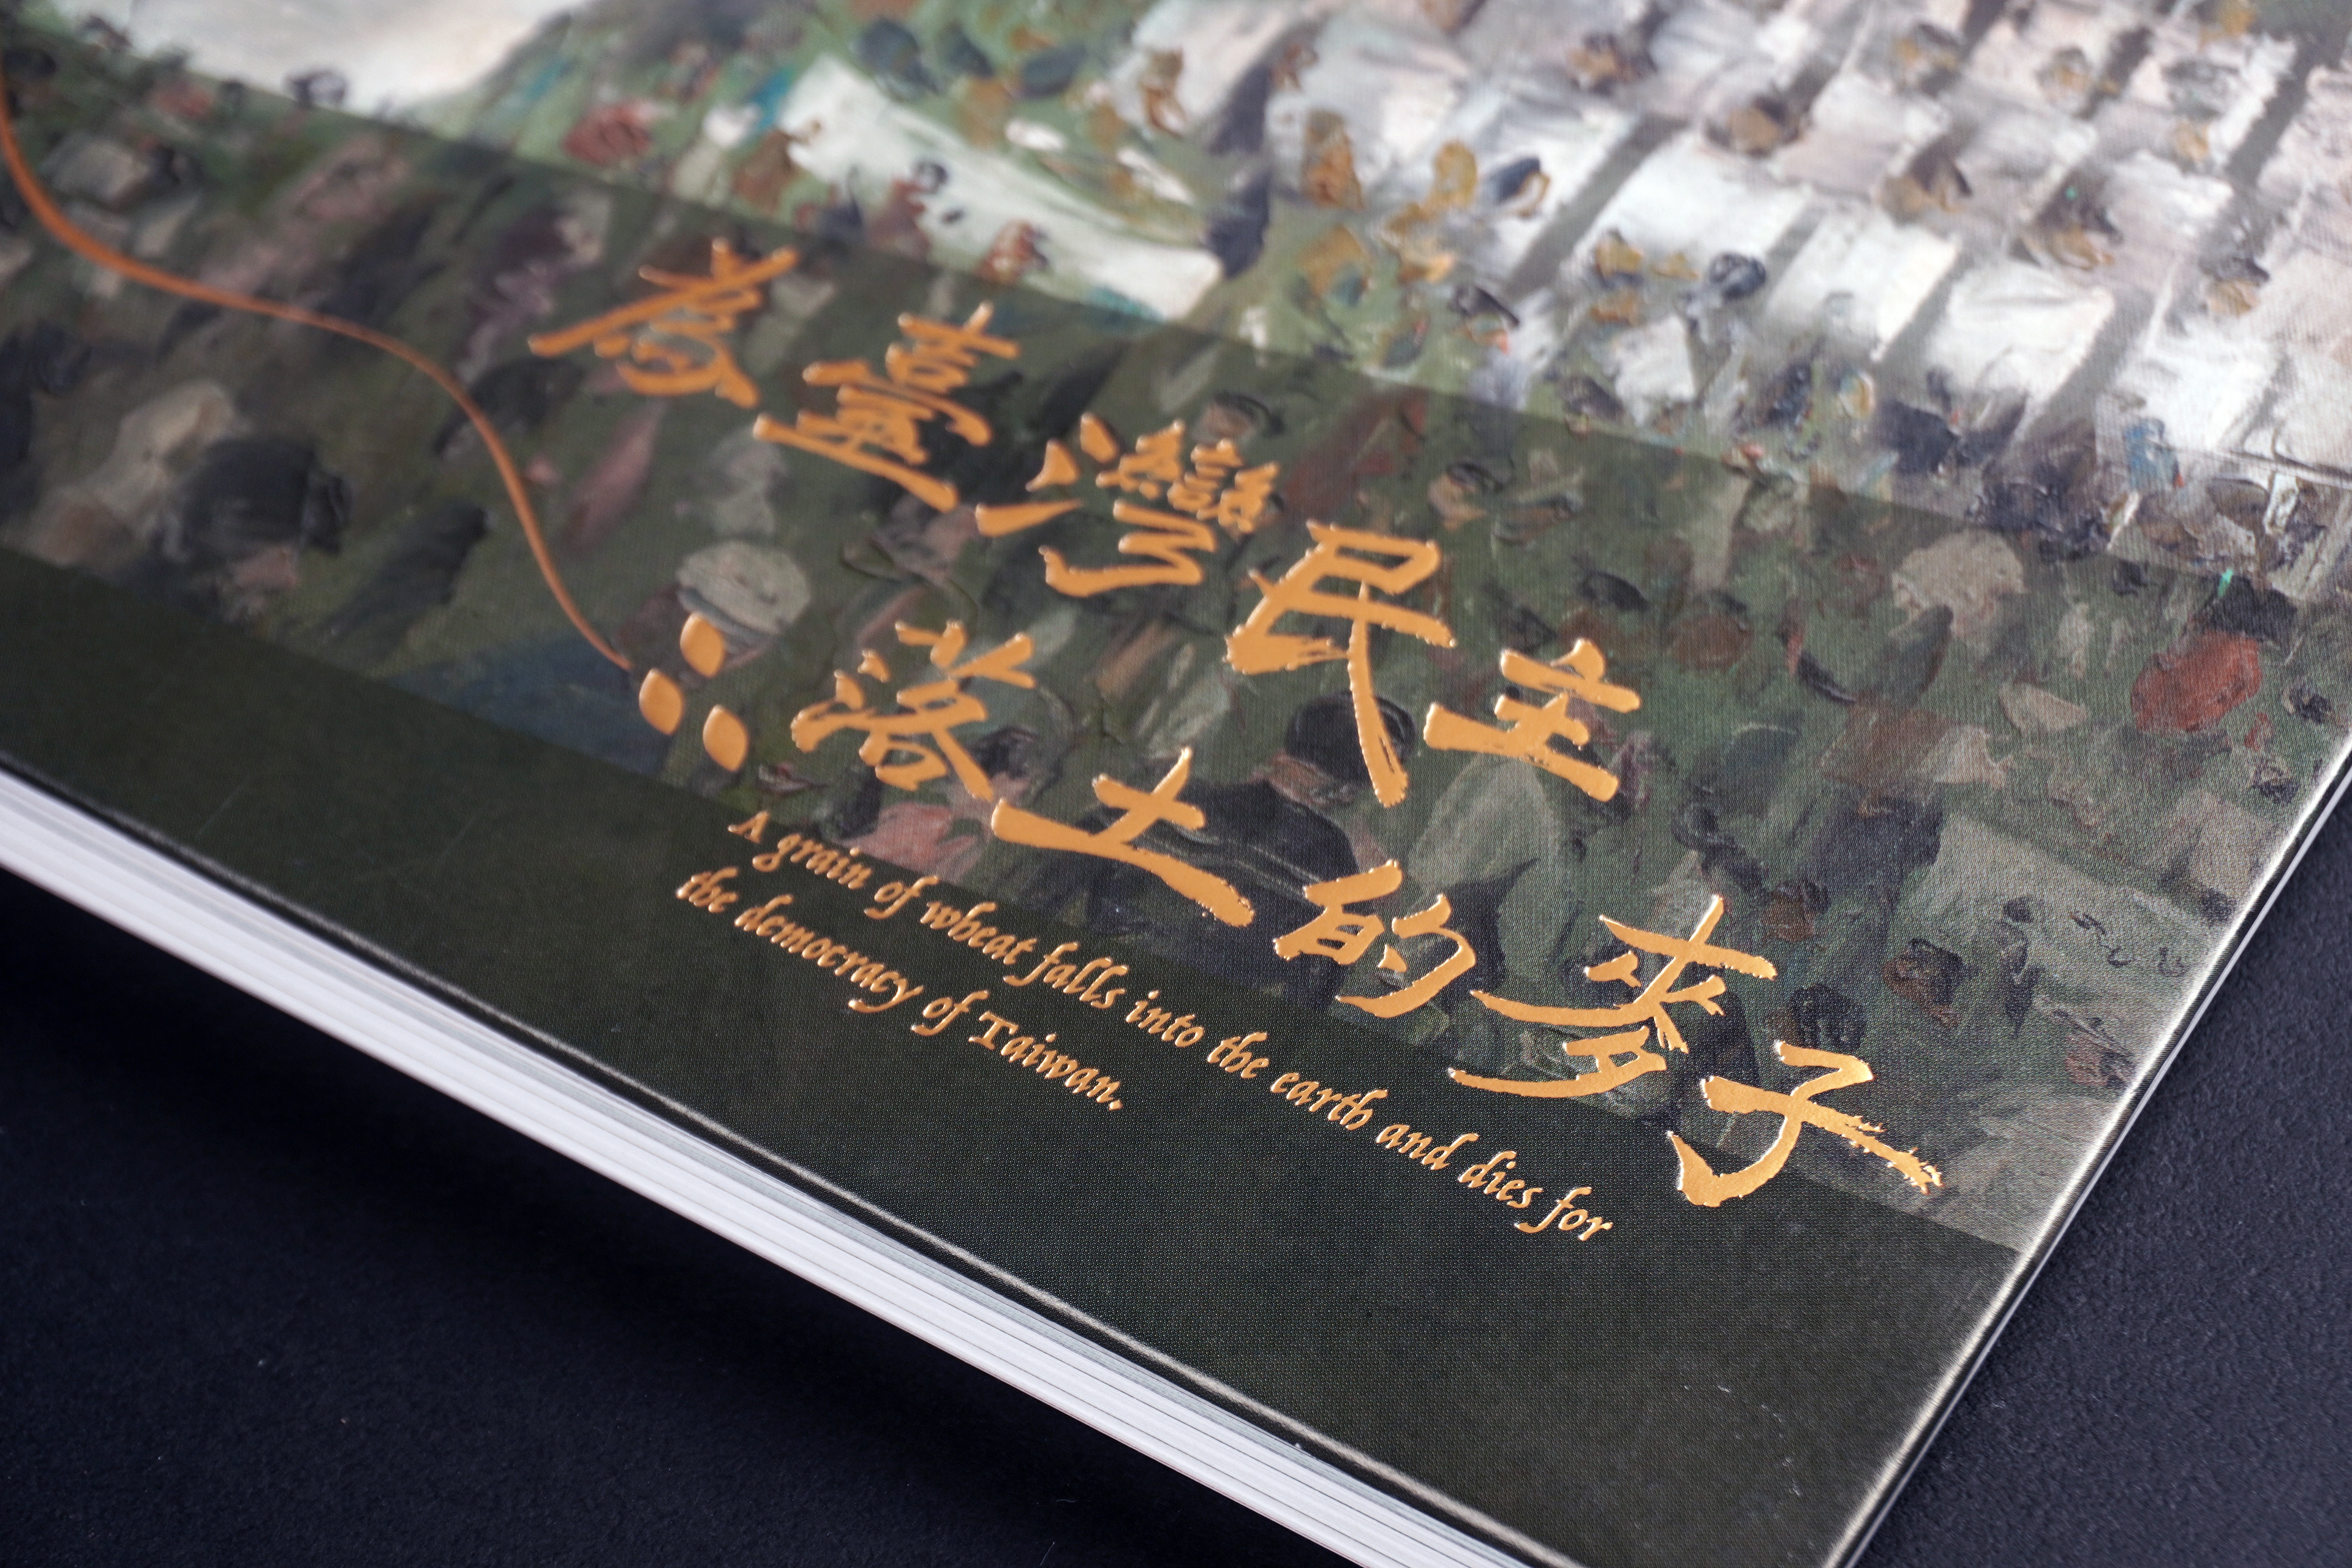 為臺灣民主
落土的麥子
A grain of wheat falls into the earth and dies for
the democracy of Taiwan.